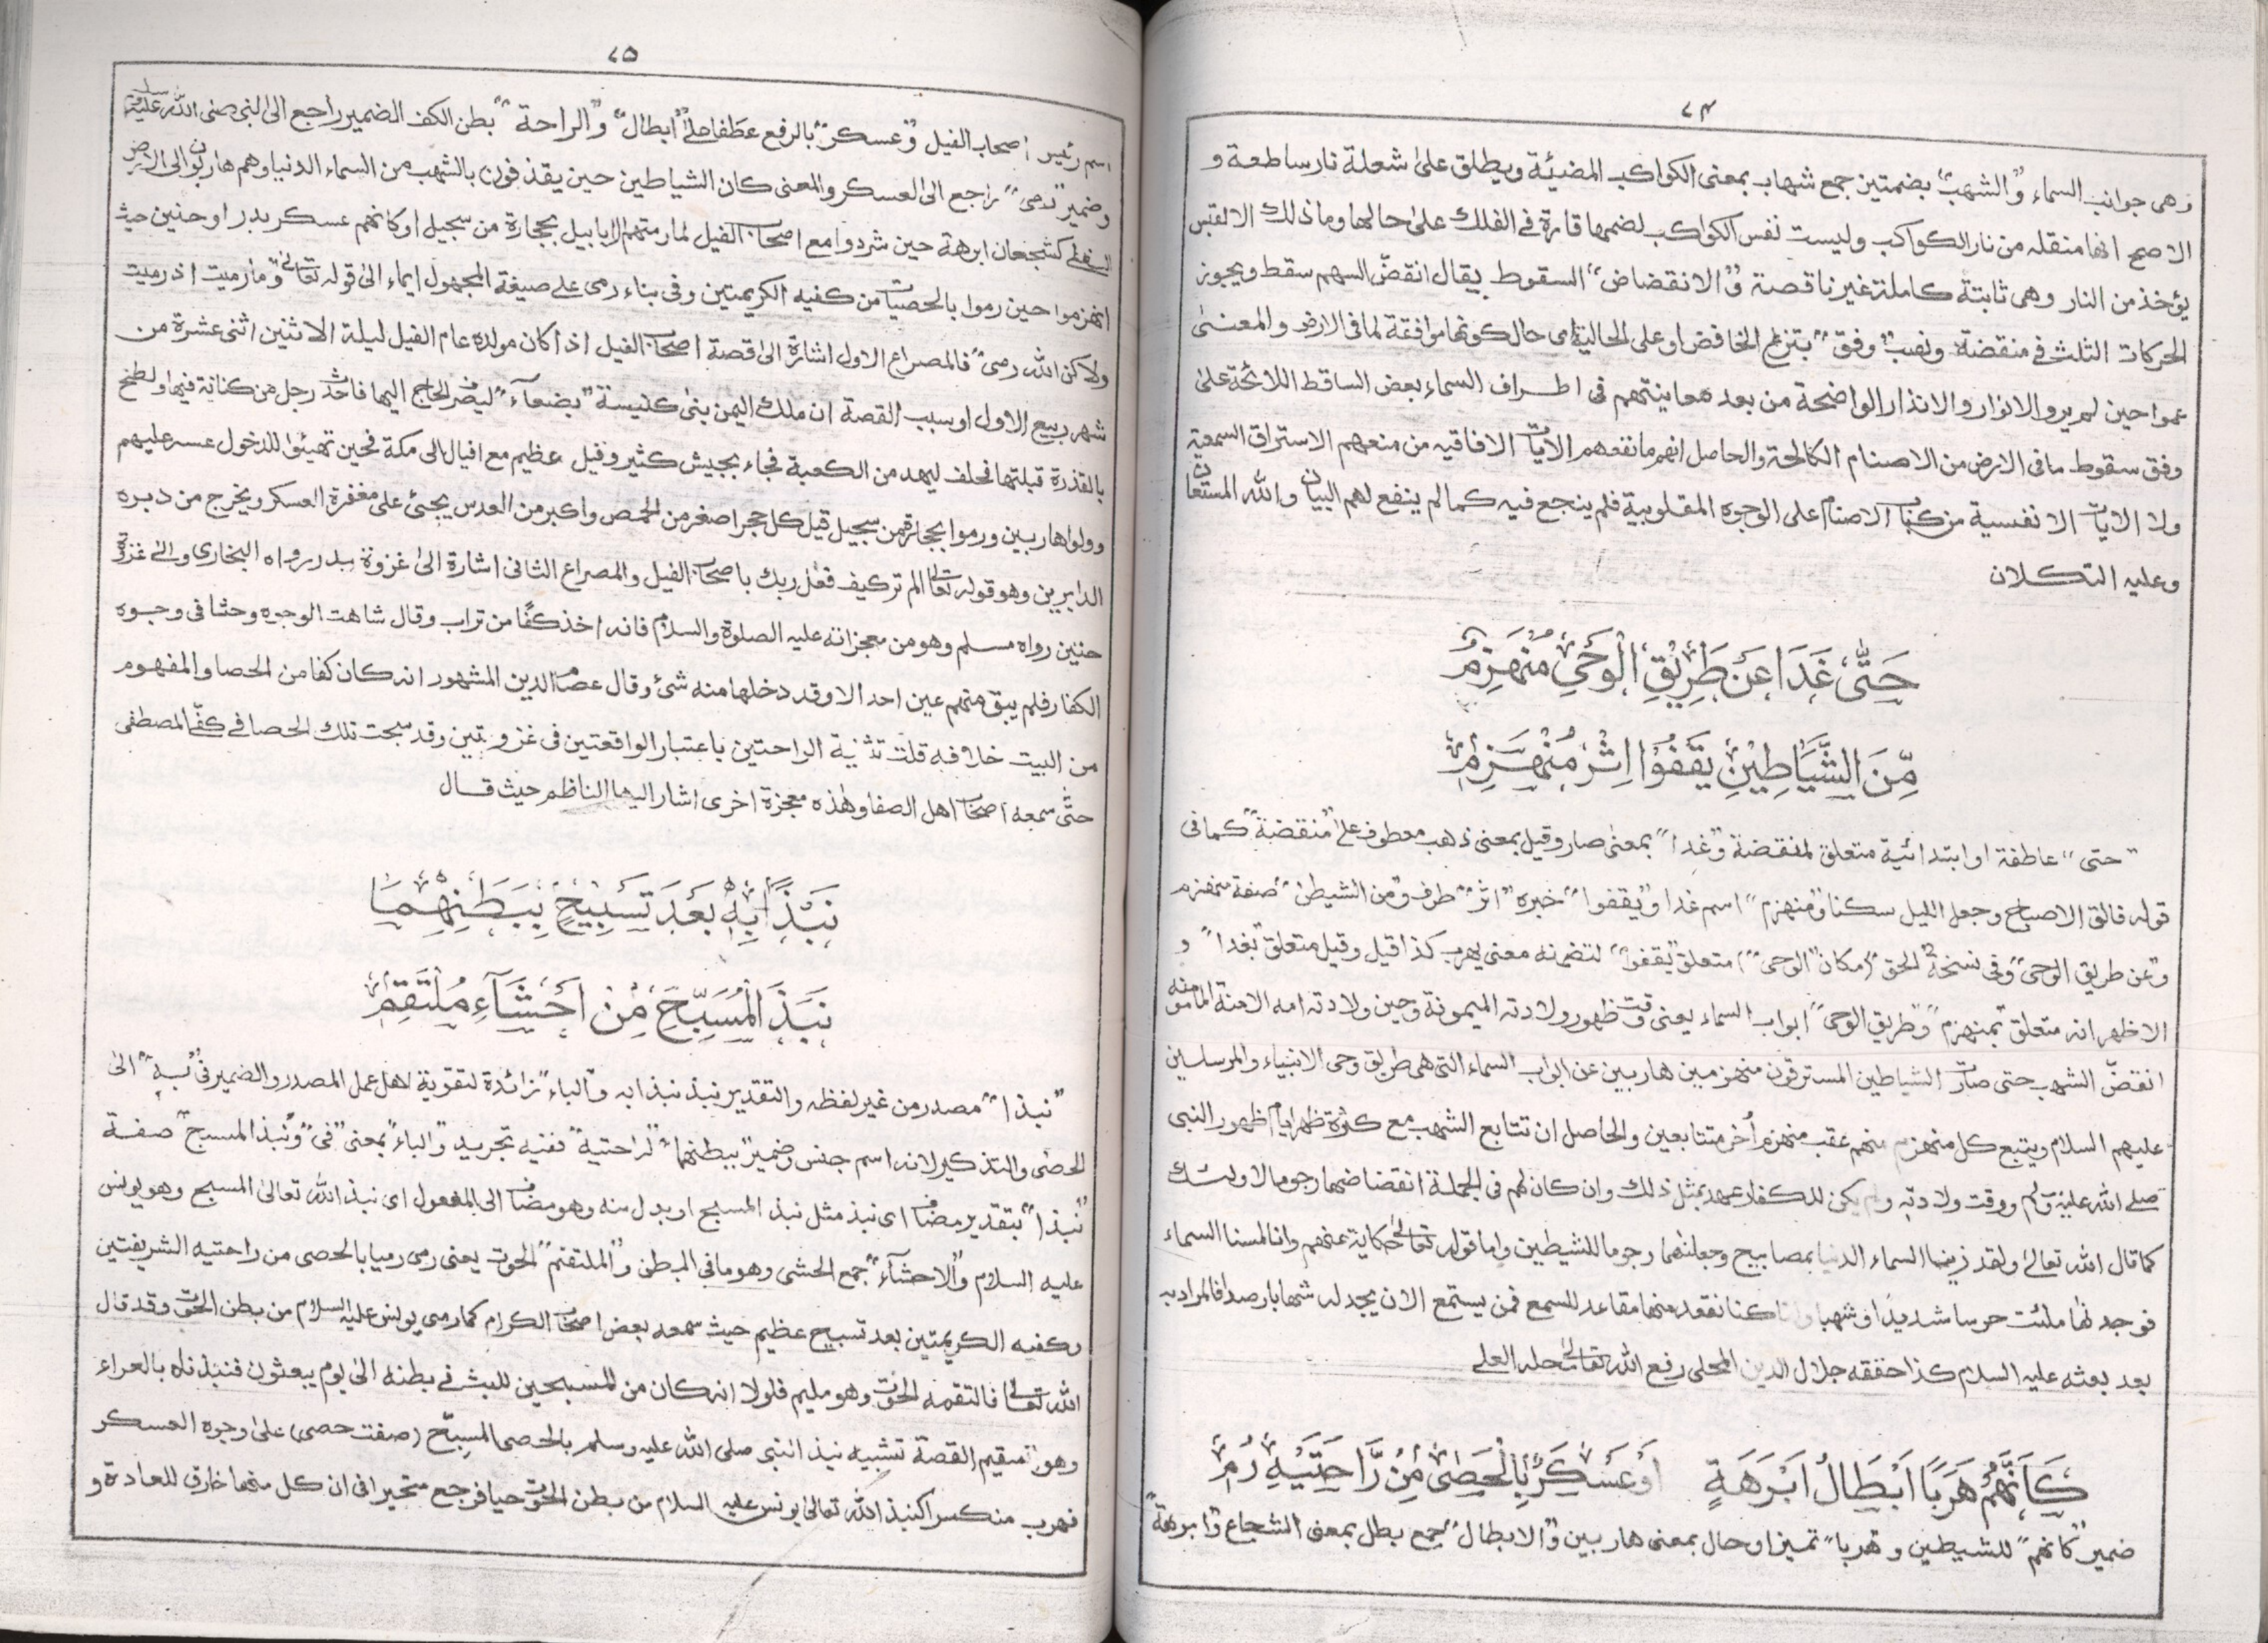 ٧٤
وهى جوانب السماء و"الشهب" بضمتين جمع شهاب بمعنى الكواكب المضيئة ويطلق على شعلة نار ساطعة و
الاصح انها منقلة من نار الكواكب وليست نفس الكواكب لضمها قارة فى الفلك على حالها وما ذلك الا لقبس
يؤخذ من النار وهى ثابتة كاملة غير ناقصة و"الانقضاض" السقوط يقال انقضّ السهم سقط ويجوز
الحركات الثلث فى منقضة ونصب "وفق" بنزع الخافض او على الحالية اى حال كونها موافقة لما فى الارض والمعنى
عموا حين لم يروا الانوار والانذار الواضحة من بعد معاينتهم فى اطراف السماء بعض الساقط اللائحة على
وفق سقوط ما فى الارض من الاصنام الكالحة والحاصل انهم ما نفعهم الايات الافاقيه من منعهم الاستراق السمعية
ولا الايات الانفسية من كبات الاصنام على الوجوه المقلوبية فلم ينجع فيه كما لم ينفع لهم البيان والله المستعان
وعليه التكلان
حَتّٰى غَدَا عَنْ طَرِيْقِ الْوَحْىِ مُنْهَزِمٌ
مِّنَ الشَّيَاطِيْنِ يَقْفُوْا اِثْرَ مُنْهَزِمٖ
"حتى" عاطفة او ابتدائية متعلق لمنقضة و"غدا" بمعنى صار وقيل بمعنى ذهب معطوف على "منقضة" كما فى
قوله فالق الاصباح وجعل الليل سكنا و"منهزم" اسم غدا و"يقفوا" خبره "اثر" ظرف و"من الشيطن" صفة منهزم
و"عن طريق الوحى" وفى نسخة "الحق" (مكان "الوحى") متعلق "يقفوا" لتضمنه معنى يهرب كذا قيل وقيل متعلق "بغدا" و
الاظهر انه متعلق "بمنهزم" و"طريق الوحى" ابواب السماء يعنى وقت ظهور ولادته الميمونة وحين ولادته امه الامنة المامونة
انقضّ الشهب حتى صارت الشياطين المسترقون منهزمين هاربين عن ابواب السماء التى هى طريق وحى الانبياء والمرسلين
عليهم السلام ويتبع كل منهزم منهم عقب منهزم أخر متتابعين والحاصل ان تتابع الشهب مع كثرة ظهر ايام ظهور النبى
صلى الله عليه وسلم ووقت ولادته ولم يكن للكفار عهد بمثل ذلك وان كان لهم فى الجملة انقضاضها رجوما لاولئك
كما قال الله تعالى ولقد زينا السماء الدنيا بمصابيح وجعلنها رجوما للشيطين واما قوله تعالى حكاية عنهم وانا لمسنا السماء
فوجدنها ملئت حرسا شديدا وشهبا وانا كنا نقعد منها مقاعد للسمع فمن يستمع الان يجد له شهابا رصدا فالمراد به
بعد بعثه عليه السلام كذا حققه جلال الدين المحلى رفع الله تعالى محله العلى
كَاَنَّهُمْ هَرَبًا اَبْطَالُ اَبْرَهَةٍ اَوْ عَسْكَرٌ بِالْحَصٰى مِنْ رَّاحَتَيْهِ رُمِ
ضمير "كانهم" للشيطين و"هربا" تميز او حال بمعنى هاربين و"الابطال" جمع بطل بمعنى الشجاع و"ابرهة"
٧٥
اسم رئيس اصحاب الفيل و"عسكر" بالرفع عطفا على "ابطال" و"الراحة" بطن الكف الضمير راجع الى النبى صلى الله عليه وسلم
وضمير "رمى" راجع الى العسكر والمعنى كان الشياطين حين يقذفون بالشهب من السماء الدنيا وهم هاربون الى الارض
السفلى كشجعان ابرهة حين شردوا مع اصحاب الفيل لما رمتهم الابابيل بحجارة من سجيل او كانهم عسكر بدر او حنين حيث
انهزموا حين رموا بالحصيات من كفيه الكريمتين وفى بناء رمى على صيغة المجهول ايماء الى قوله تعالى وما رميت اذ رميت
ولاكن الله رمى "فالمصراع الاول اشارة الى قصة اصحاب الفيل اذ كان مولده عام الفيل ليلة الاثنين اثنى عشرة من
شهر ربيع الاول او سبب القصة ان ملك اليمن بنى كنيسة "بصنعآء" ليصرف الحاج اليها فاحدث رجل من كنانة فيها ولطخ
بالقذرة قبلتها فحلف ليهد من الكعبة فجاء بجيش كثير وفيل عظيم مع افيال الى مكة فحين تهيئوا للدخول عسر عليهم
وولوا هاربين ورموا بحجارة من سجيل قيل كل حجر اصغر من الحمص واكبر من العدس يجئ على مغفرة العسكر ويخرج من دبره
الدابرين وهو قوله تعالى الم تر كيف فعل ربك باصحاب الفيل والمصراع الثانى اشارة الى غزوة بدر رواه البخارى والى غزوة
حنين رواه مسلم وهو من معجزاته عليه الصلوة والسلام فانه اخذ كفًا من تراب وقال شاهت الوجوه وحثا فى وجوه
الكفار فلم يبق منهم عين احد الا وقد دخلها منه شئ وقال عصام الدين المشهور انه كان كفا من الحصا والمفهوم
من البيت خلافه قلت تثنية الراحتين باعتبار الواقعتين فى غزوتين وقد سبحت تلك الحصا فى كفّ المصطفى
حتّى سمعه اصحاب اهل الصفا وهٰذه معجزة اخرى اشار اليها الناظم حيث قال
نَبْذًا بِهٖ بَعْدَ تَسْبِيْحٍ بِبَطْنِهِمَا
نَبْذَ الْمُسَبِّحِ مِنْ اَحْشَآءِ مُلْتَقِمٖ
"نبذا" مصدر من غير لفظه والتقدير نبذ نبذا به و"الباء" زائدة لتقوية لاهل عمل المصدر والضمير فى "به" الى
الحصٰى والتذكير لانه اسم جنس وضمير "ببطنهما" لراحتيه" ففيه تجريد و"الباء" بمعنى "فى" و"نبذ المسبح" صفة
"نبذا" بتقدير مضاف اى نبذ مثل نبذ المسبح او بدل منه وهو مضاف الى المفعول اى نبذ الله تعالى المسبح وهو يونس
عليه السلام و"الاحشآء" جمع الحشى وهو ما فى البطن و"الملتقم" الحوت يعنى رمى رميا بالحصى من راحتيه الشريفتين
وكفيه الكريمتين بعد تسبيح عظيم حيث سمعه بعض اصحاب الكرام كما رمى يونس عليه السلام من بطن الحوت وقد قال
الله تعالى فالتقمه الحوت وهو مليم فلولا انه كان من المسبحين للبث فى بطنه الى يوم يبعثون فنبذناه بالعراء
وهو سقيم القصة تشبيه نبذ النبى صلى الله عليه وسلم بالحصى المسبّح (صفت حصى) على وجوه العسكر
فهرب منكسرا كنبذ الله تعالى يونس عليه السلام من بطن الحوت حيا فرجع متحيرا فى ان كل منهما خارق للعادة و